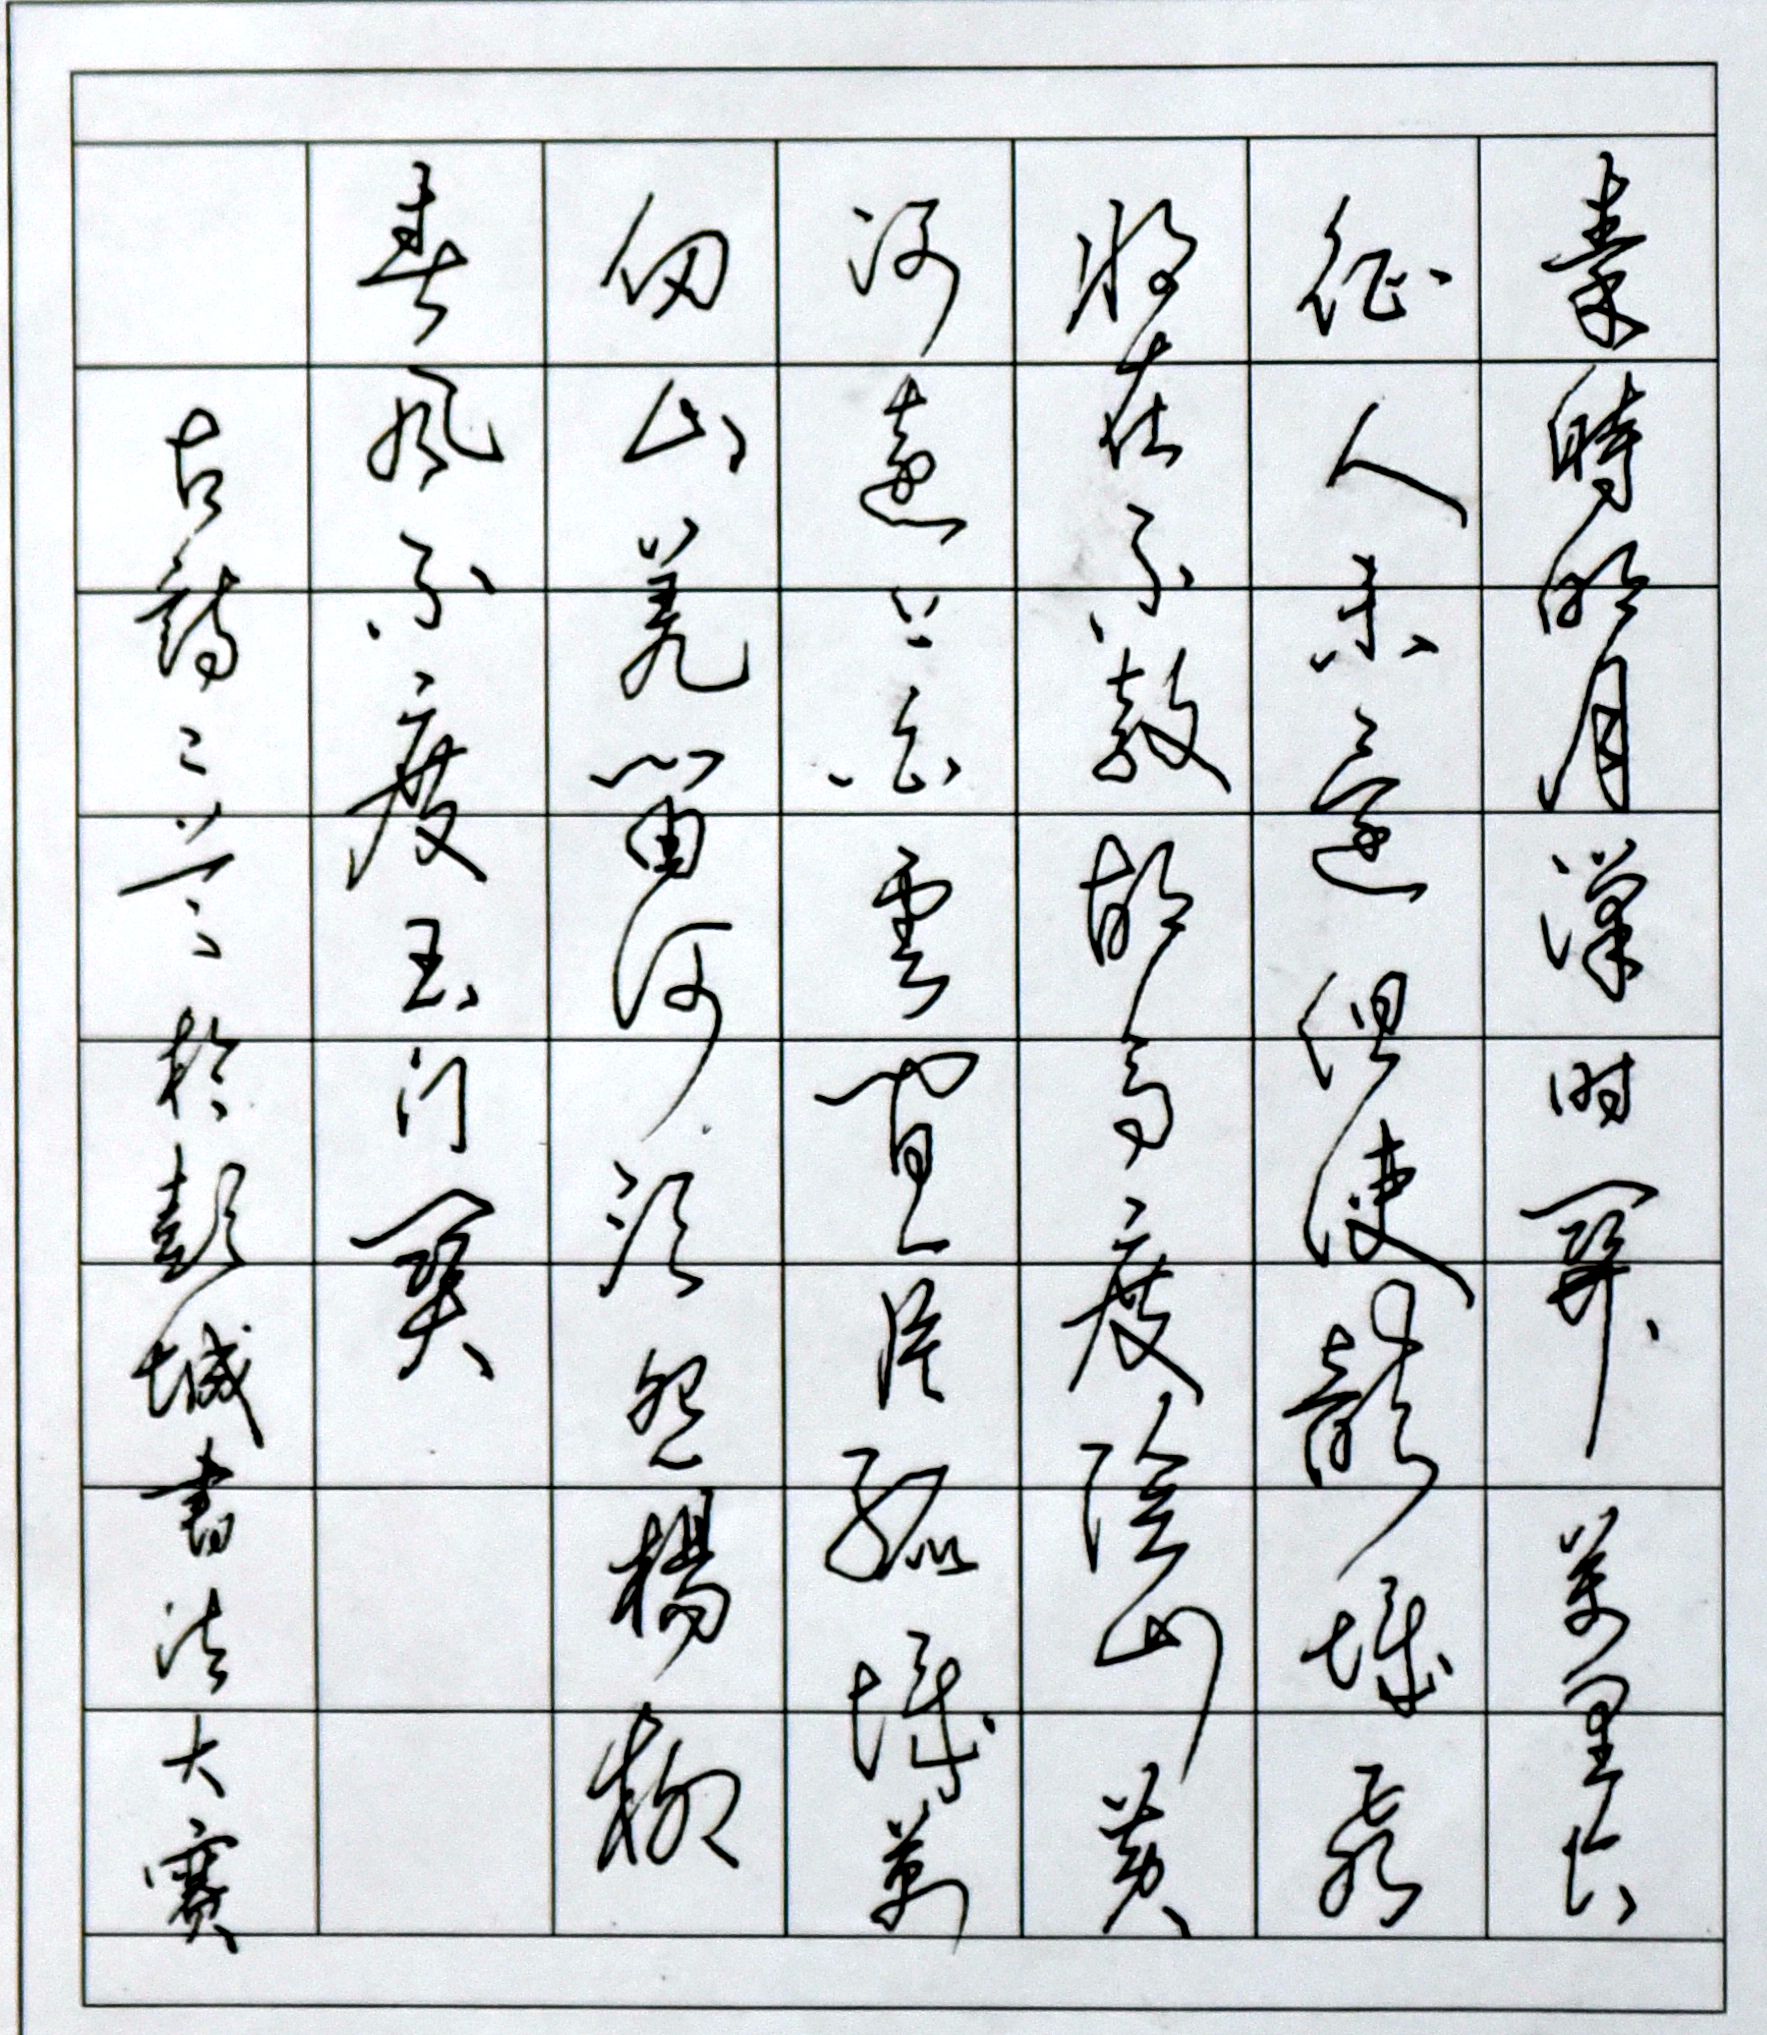 秦時明月漢时關萬里长
征人未還但使龍城飛
将在不教胡馬度陰山黄
河遠上白雲間一片孤城萬
仞山羌笛何須怨楊柳
春風不度玉门關
古詩二首於彭城書法大賽